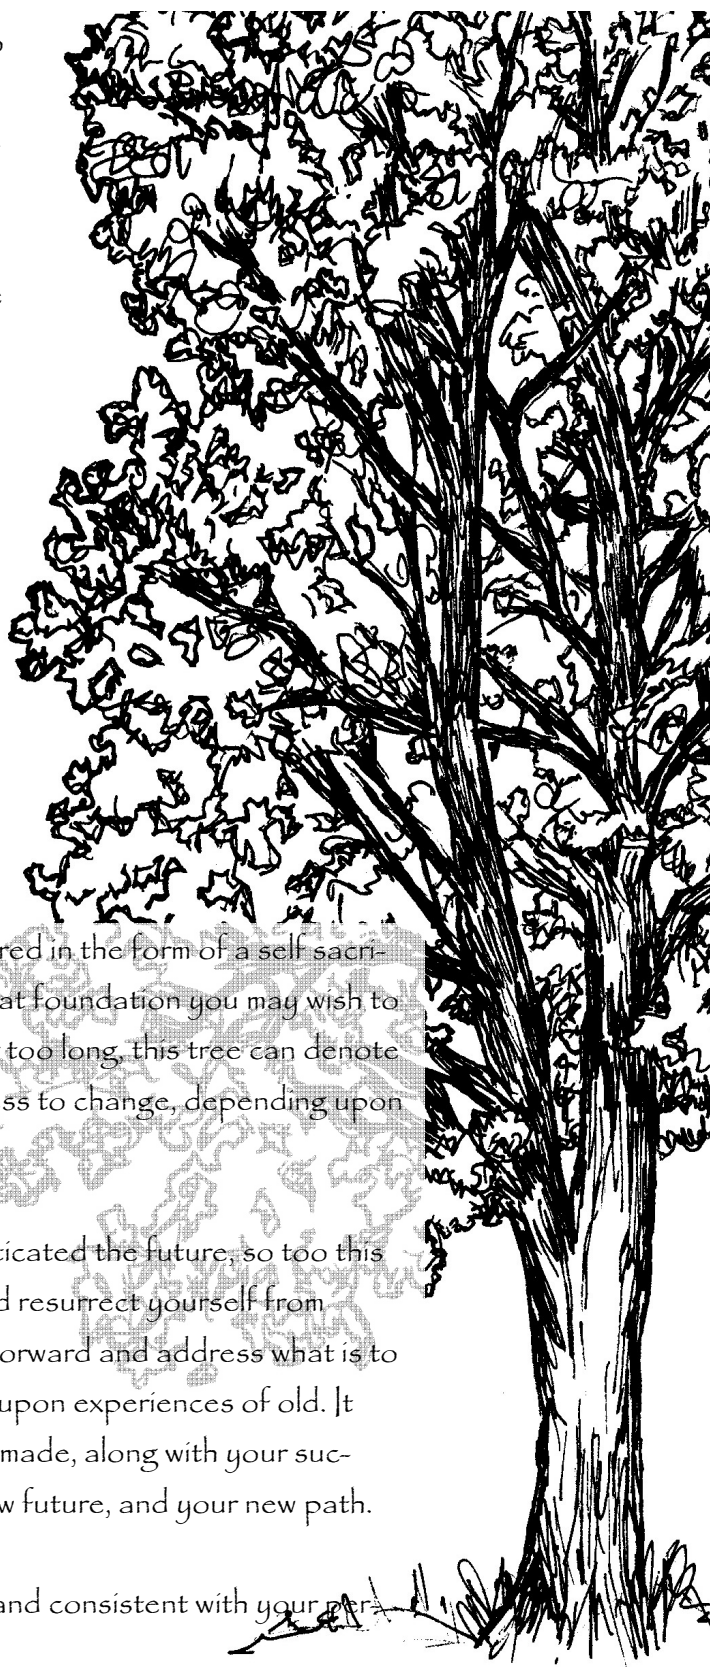 red in the form of a self sacri-
at foundation you may wish to
too long, this tree can denote
ss to change, depending upon
ticated the future, so too this
d resurrect yourself from
orward and address what is to
upon experiences of old. It
made, along with your suc-
w future, and your new path.
and consistent with your per-